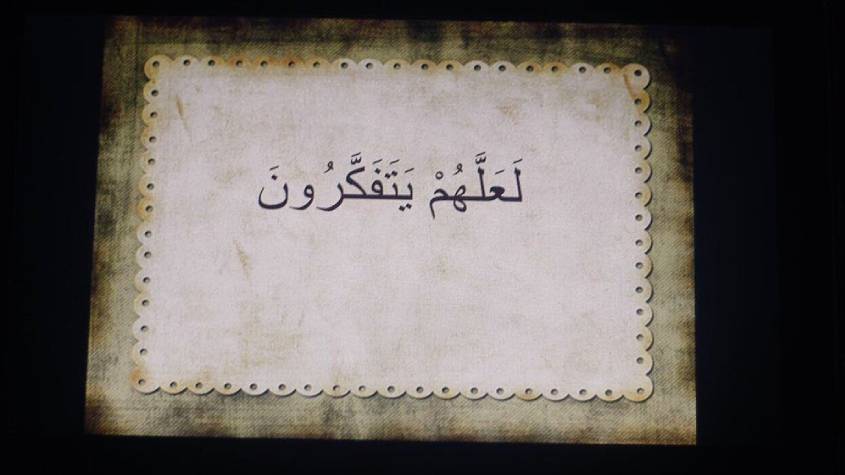 لَعَلَّهُمْ يَتَفَكَّرُونَ